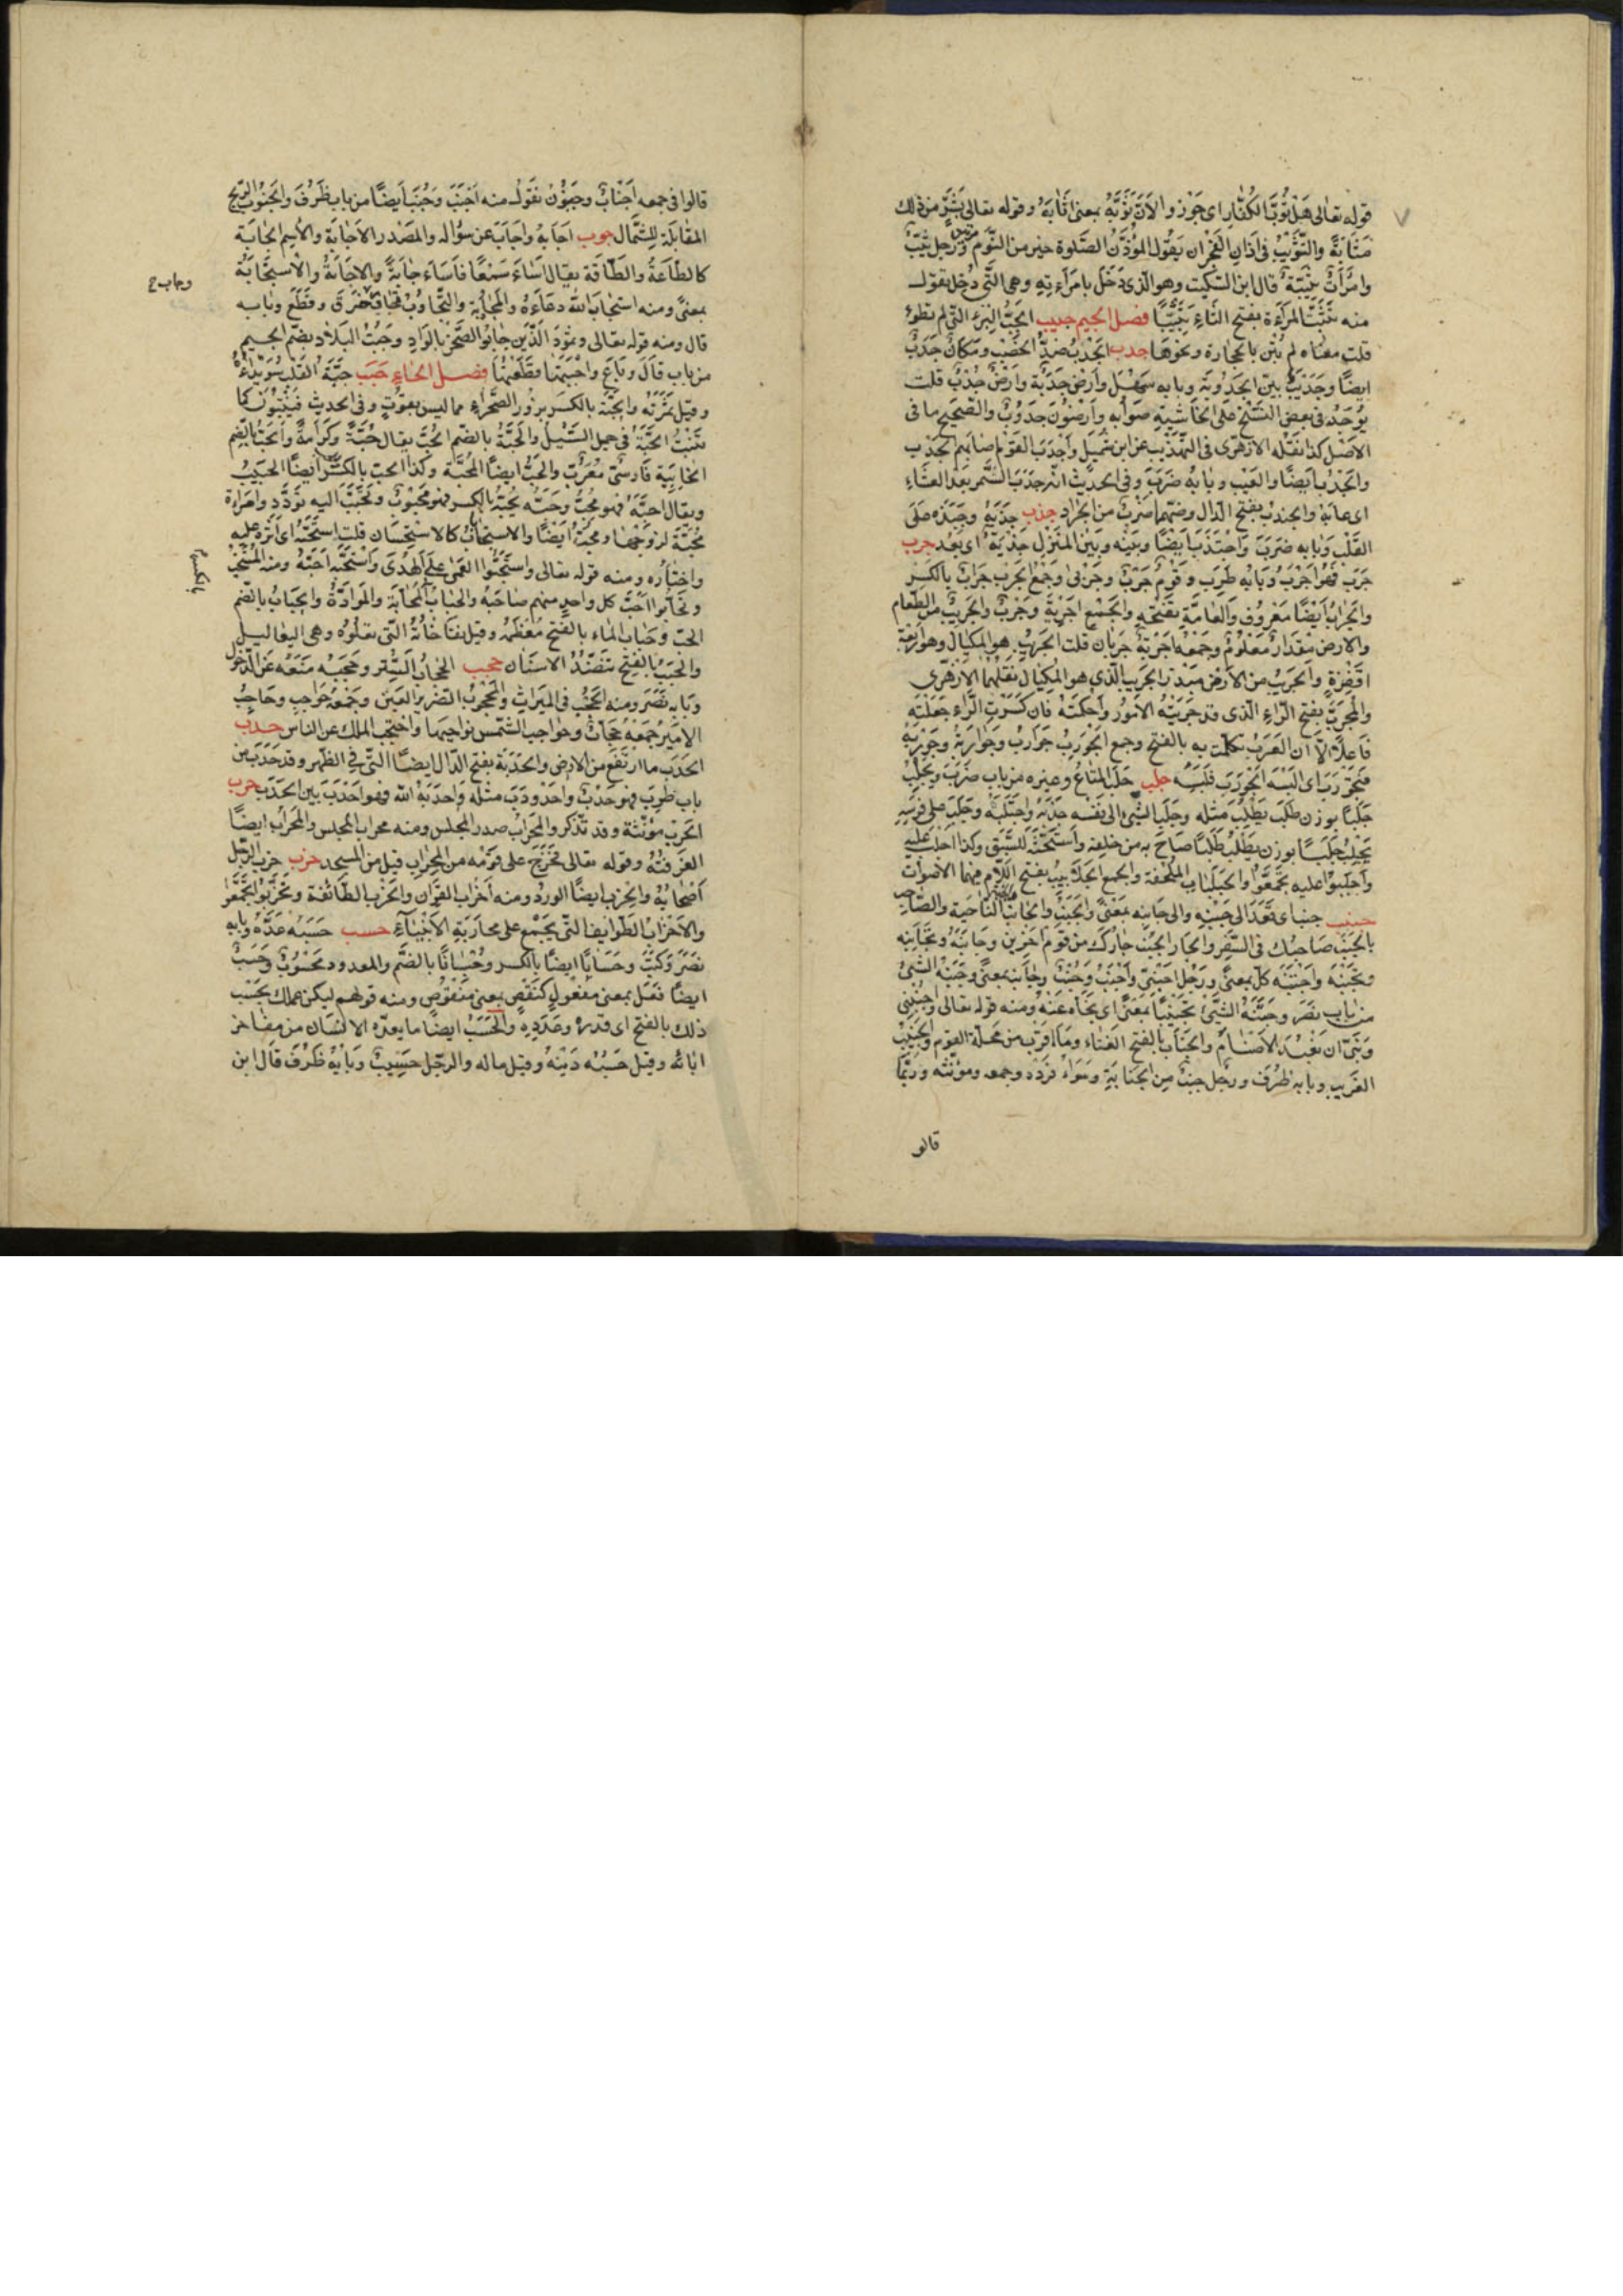 قوله تعالى هل ثوب الكفار اى جوز والان ثوبه بمعنى اثابه وقوله تعالى بشر من ذلك
مثابة والتثويب فى اذان الفجر ان يقول المؤذن الصلوة خير من النوم مرتين ورجل ثيب
وامراة ثيبة قال ابن السكيت وهو الذى دخل بامراءته وهى التى دخل تقول
منه ثيبت المرءة بفتح الثاء تثييبا فصل الجيم جبب الجب البئر التى لم تطوء
قلت معناه لم تبن بالحجارة ونحوها جدب الجدب ضد الخصب ومكان جدب
ايضا وجديب بين الجدوبة وبابه سهل وارض جدبة وارض جدب قلت
يوجد فى بعض النسخ على الحاشية صوابه وارضون جدوب والصحيح ما فى
الاصل كذا نقله الازهرى فى التهذيب عن ابن شميل واجدب القوم اصابهم الجدب
والجدب ايضا العيب وبابه ضرب وفى الحديث انه جدب السمر بعد العشاء
اى عابه والجندب بفتح الدال وضمها ضرب من الجراد جذب جذبه وجبذه على
القلب وبابه ضرب واجتذبه ايضا وبينه وبين المنزل جذبة اى بعد جرب
جرب فهو اجرب وبابه طرب وقوم جرب وجربى وجمع الجرب جراب بالكسر
والجراب ايضا معروف والعامة تفتحه والجمع اجربة وجرب والجريب من الطعام
والارض مقدار معلوم وجمعه اجربة وجربان قلت الجريب هو المكيال وهو اربعة
اقفزة والجريب من الارض مبذر الجريب الذى هو المكيال نقلهما الازهرى
والمجرب بفتح الراء الذى قد جربته الامور واحكمته فان كسرت الراء جعلته
فاعلا الا ان العرب تكلمت به بالفتح وجمع الجورب جوارب وجواربة وجوربه
فتجورب اى البسه الجورب فلبسه جلب جلب المتاع وغيره من باب ضرب ويجلب
جلبا بوزن طلب يطلب مثله وجلب الشئ الى نفسه جذبه واجتلبه وجلب على فرسه
يجلب جلبا بوزن يطلب طلبا صاح به من خلفه واستحثه للسبق وكذا اجلب عليه
واجلبوا عليه تجمعوا والجلباب الملحفة والجمع الجلابيب بفتح اللام فيهما الاصوات
جنب جنب اى قعد الى جنبه والى جانبه بمعنى والجنب والجانب الناحية والصاحب
بالجنب صاحبك فى السفر والجار الجنب جارك من قوم اخرين وجانبه وتجانبه
وتجنبه واجتنبه كل بمعنى ورجل اجنبى واجنب وجنب وجانب بمعنى وجنبه الشئ
من باب نصر وجنبه الشئ تجنيبا بمعنى اى نحاه عنه ومنه قوله تعالى واجنبنى
وبنى ان نعبد الاصنام والجناب بالفتح الفناء وما اقرب من محلة القوم والجنيب
الغريب وبابه ظرف ورجل جنب من الجنابة وسواء فرده وجمعه ومؤنثه وربما
قالو
قالوا فى جمعه اجناب وجنبون تقول منه اجنب وجنب ايضا من باب ظرف والجنوب الريح
المقابلة للشمال جوب اجابه واجاب عن سؤاله والمصدر الاجابة والاسم الجابة
كالطاعة والطاقة يقال اساء سمعا فاساء جابة والاجابة والاستجابة
بمعنى ومنه استجاب الله دعاءه والمجاوبة والتجاوب التحاور وجاب خرق وقطع وبابه
وجاب ح
قال ومنه قوله تعالى وثمود الذين جابوا الصخر بالواد وجبت البلاد بضم الجيم
من باب قال وباع واجتبتها قطعتها فصل الحاء حبب حبة القلب سويداؤه
وقيل ثمرته والحبة بالكسر بزور الصحراء مما ليس بقوت وفى الحديث فينبتون كما
تنبت الحبة فى حميل السيل والحبة بالضم الحب يقال حبة وكرامة والحب بالضم
الخابية فارسى معرب والحب ايضا المحبة وكذا الحب بالكسر والحب ايضا الحبيب
ويقال احبه فهو محب وحبه يحبه بالكسر فهو محبوب وتحبب اليه تودد وامراة
محبة لزوجها ومحب ايضا والاستحباب كالاستحسان قلت استحبه اى آثره عليه
بالكسر
واختاره ومنه قوله تعالى واستحبوا العمى على الهدى واستحبه احبه ومنه المستحب
وتحابوا احب كل واحد منهم صاحبه والحباب المحابة والموادة والحباب بالضم
الحب وحباب الماء بالفتح معظمه وقيل نفاخاته التى تعلوه وهى اليعاليل
والحبب بالفتح تنضد الاسنان حجب الحجاب الستر وحجبه منعه عن الدخول
وبابه نصر ومنه الحجب فى الميراث والمحجوب الضرير العين وجمعه حواجب وحاجب
الامير جمعه حجاب وحواجب الشمس نواحيها واحتجب الملك عن الناس حدب
الحدب ما ارتفع من الارض والحدبة بفتح الدال ايضا التى فى الظهر وقد حدب من
باب طرب فهو حدب واحدودب مثله واحدبه الله فهو احدب بين الحدب حرب
الحرب مؤنثة وقد تذكر والمحراب صدر المجلس ومنه محراب المجلس والمحراب ايضا
الغرفة وقوله تعالى فخرج على قومه من المحراب قيل من المسجد حزب حزب الرجل
اصحابه والحزب ايضا الورد ومنه احزاب القرآن والحزب الطائفة وتحزبوا تجمعوا
والاحزاب الطوايف التى تجتمع على محاربة الانبياء حسب حسبه عده وبابه
نصر وكتب وحسابا ايضا بالكسر وحسبانا بالضم والمعدود محسوب وحسب
ايضا فعل بمعنى مفعول كنقص بمعنى منقوص ومنه قولهم ليكن عملك بحسب
ذلك بالفتح اى قدره وعدده والحسب ايضا ما يعده الانسان من مفاخر
ابائه وقيل حسبه دينه وقيل ماله والرجل حسيب وبابه ظرف قال ابن